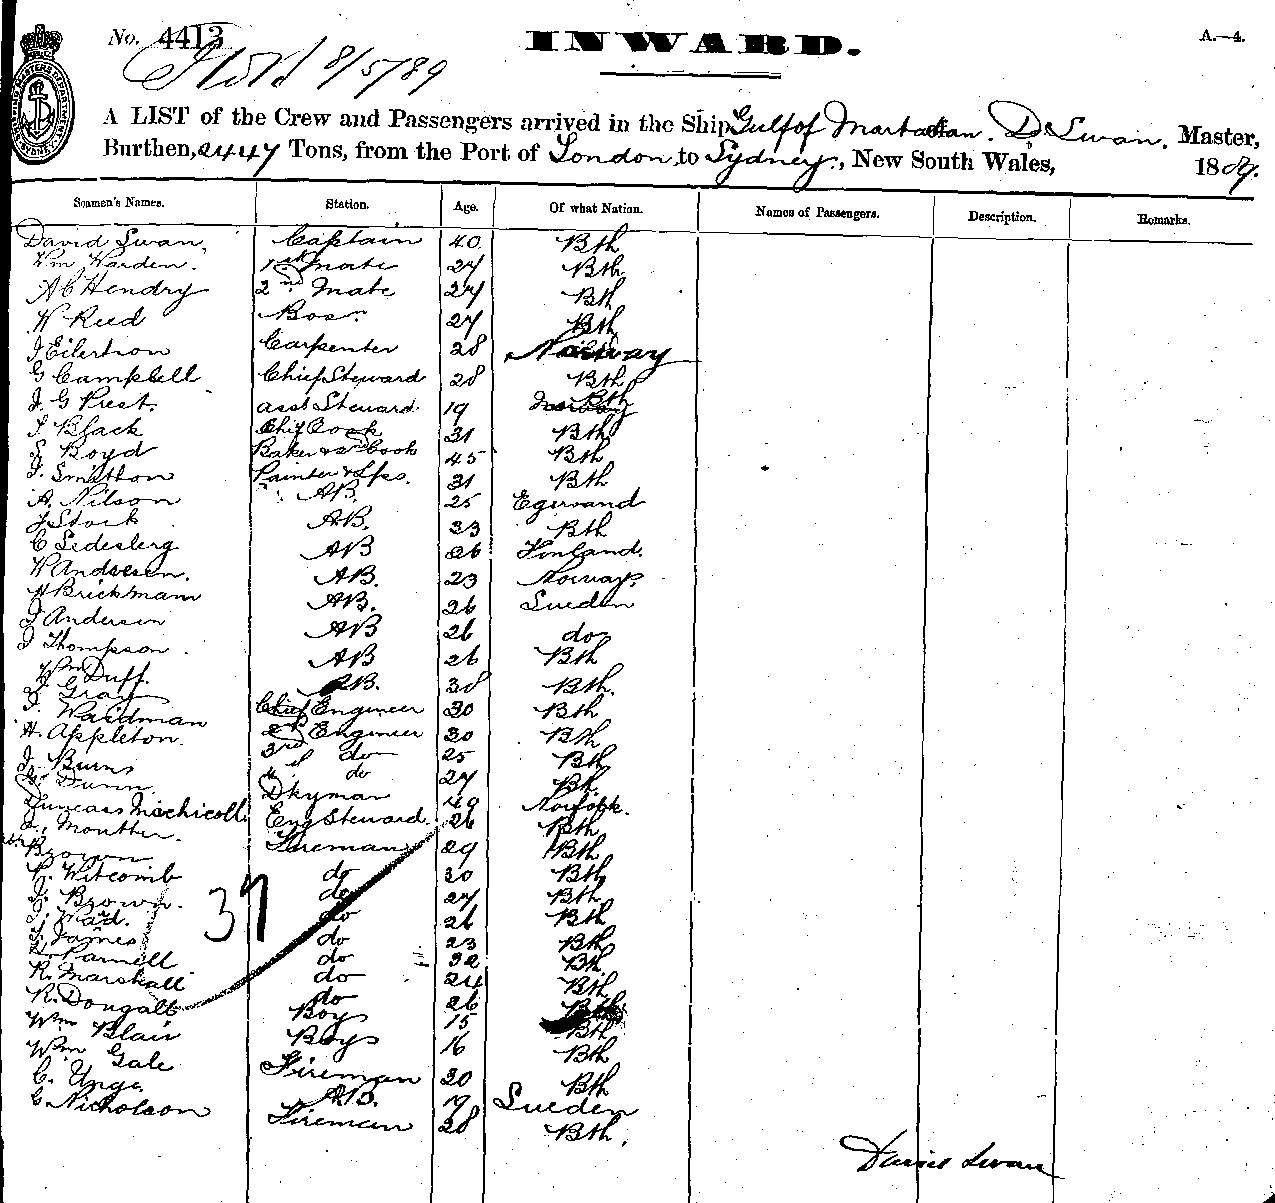 No. 4413
INWARD.
A.—4.
8/5/89
A LIST of the Crew and Passengers arrived in the Ship Gulf of Martaban. D. Swan, Master,
Burthen, 2447 Tons, from the Port of London, to Sydney, New South Wales, 1889.
Seamen's Names. Station. Age. Of what Nation. Names of Passengers. Description. Remarks.
David Swan. Captain 40 Bth
Wm Warden. 1st Mate 27 Bth.
A C Hendry 2nd Mate 27 Bth
W Reed Bosr. 27 Bth
J Eilertson Carpenter 28 Norway
G Campbell Chief Steward 28 Bth
J. G Prest. asst Steward. 19 Bth
Black Chief Cook 31 Bth
Boyd Baker & 2nd Cook 45 Bth
Smithson Painter & Lps. 31 Bth
A. Nilson AB. 25
J Stock AB. 33 Bth
C AB 26 Finland.
W Andresen. AB. 23 Norway.
H Brickmam AB. 26 Sueden
J Andersin AB 26 do
J Thompson AB 26 Bth
Wm Duff. AB. 38 Bth.
J Gray Chief Engineer 30 Bth
J. Waidman 2nd Engineer 30 Bth
H. Appleton. 3rd do 25 Bth
J. Burns 4 do 27 Bth.
Dunn. Dkyman 49 Norfolk.
Duncass Eng Steward. 26 Bth
Mouther. Fireman 29 Bth
Brown do 30 Bth
Witcomb do 27 Bth
J. Brown. do 26 Bth
J. Ward. do 23 Bth
J. James do 32 Bth
H. Parnell do 24 Bth
R. Marshall do 26 Bth
R. Dougall Boy 15 Bth
Wm Blair Boy 16 Bth
Wm Gale Fireman 30 Bth
C. Unge. AB. Sueden
G Nicholson Fireman 28 Bth.
37
David Swan